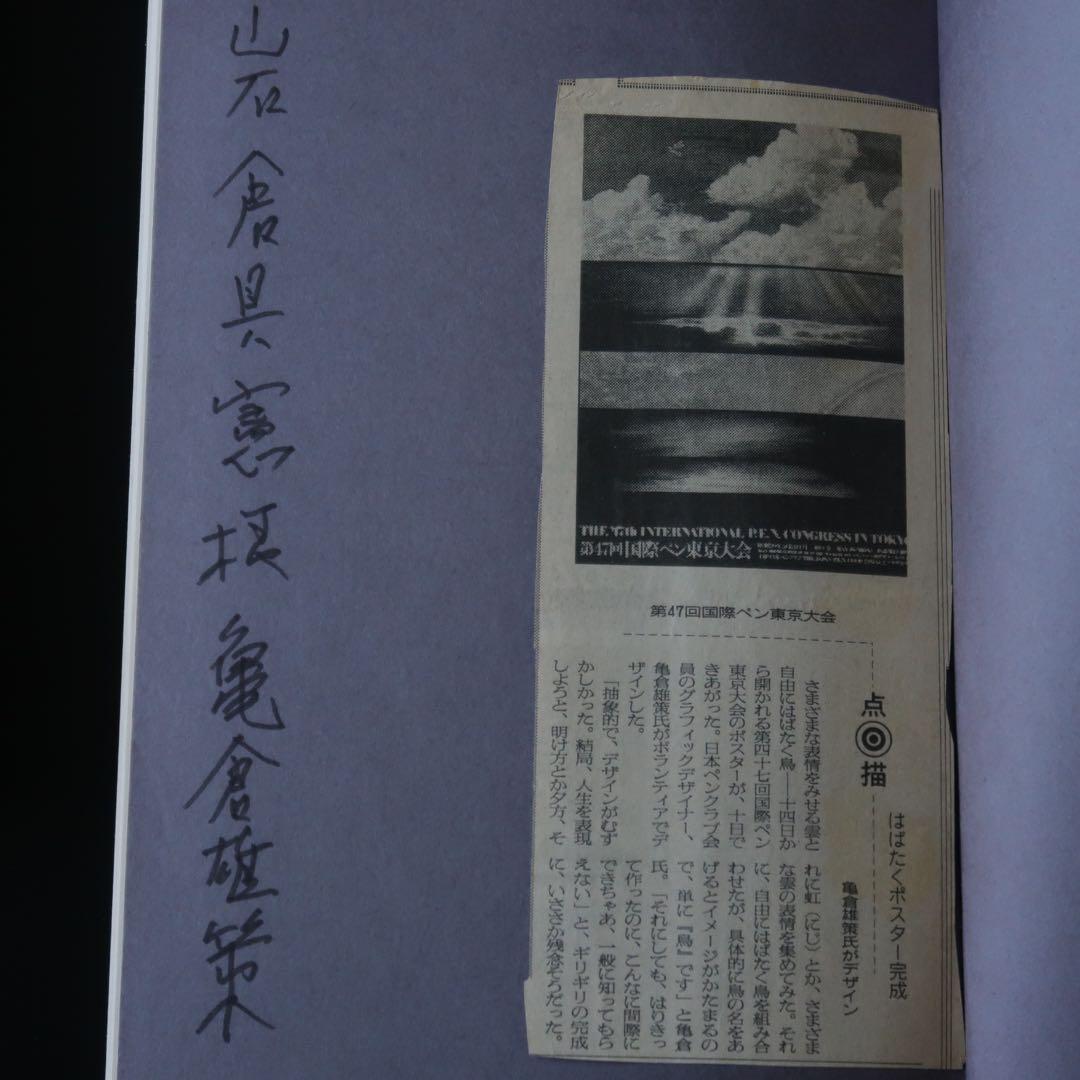 THE 47th INTERNATIONAL P.E.N. CONGRESS IN TOKYO
第47回国際ペン東京大会
第47回国際ペン東京大会
点描
はばたくポスター完成
亀倉雄策氏がデザイン
さまざまな表情をみせる雲と
自由にはばたく鳥――十四日か
ら開かれる第四十七回国際ペン
東京大会のポスターが、十日で
きあがった。日本ペンクラブ会
員のグラフィックデザイナー、
亀倉雄策氏がボランティアでデ
ザインした。
「抽象的で、デザインがむず
かしかった。結局、人生を表現
しようと、明け方とか夕方、そ
れに虹（にじ）とか、さまざま
な雲の表情を集めてみた。それ
に、自由にはばたく鳥を組み合
わせたが、具体的に鳥の名をあ
げるとイメージがかたまるの
で、単に『鳥』です」と亀倉
氏。「それにしても、はりきっ
て作ったのに、こんなに間際に
できちゃあ、一般に知ってもら
えない」と、ギリギリの完成
に、いささか残念そうだった。
岩倉具憲様 亀倉雄策